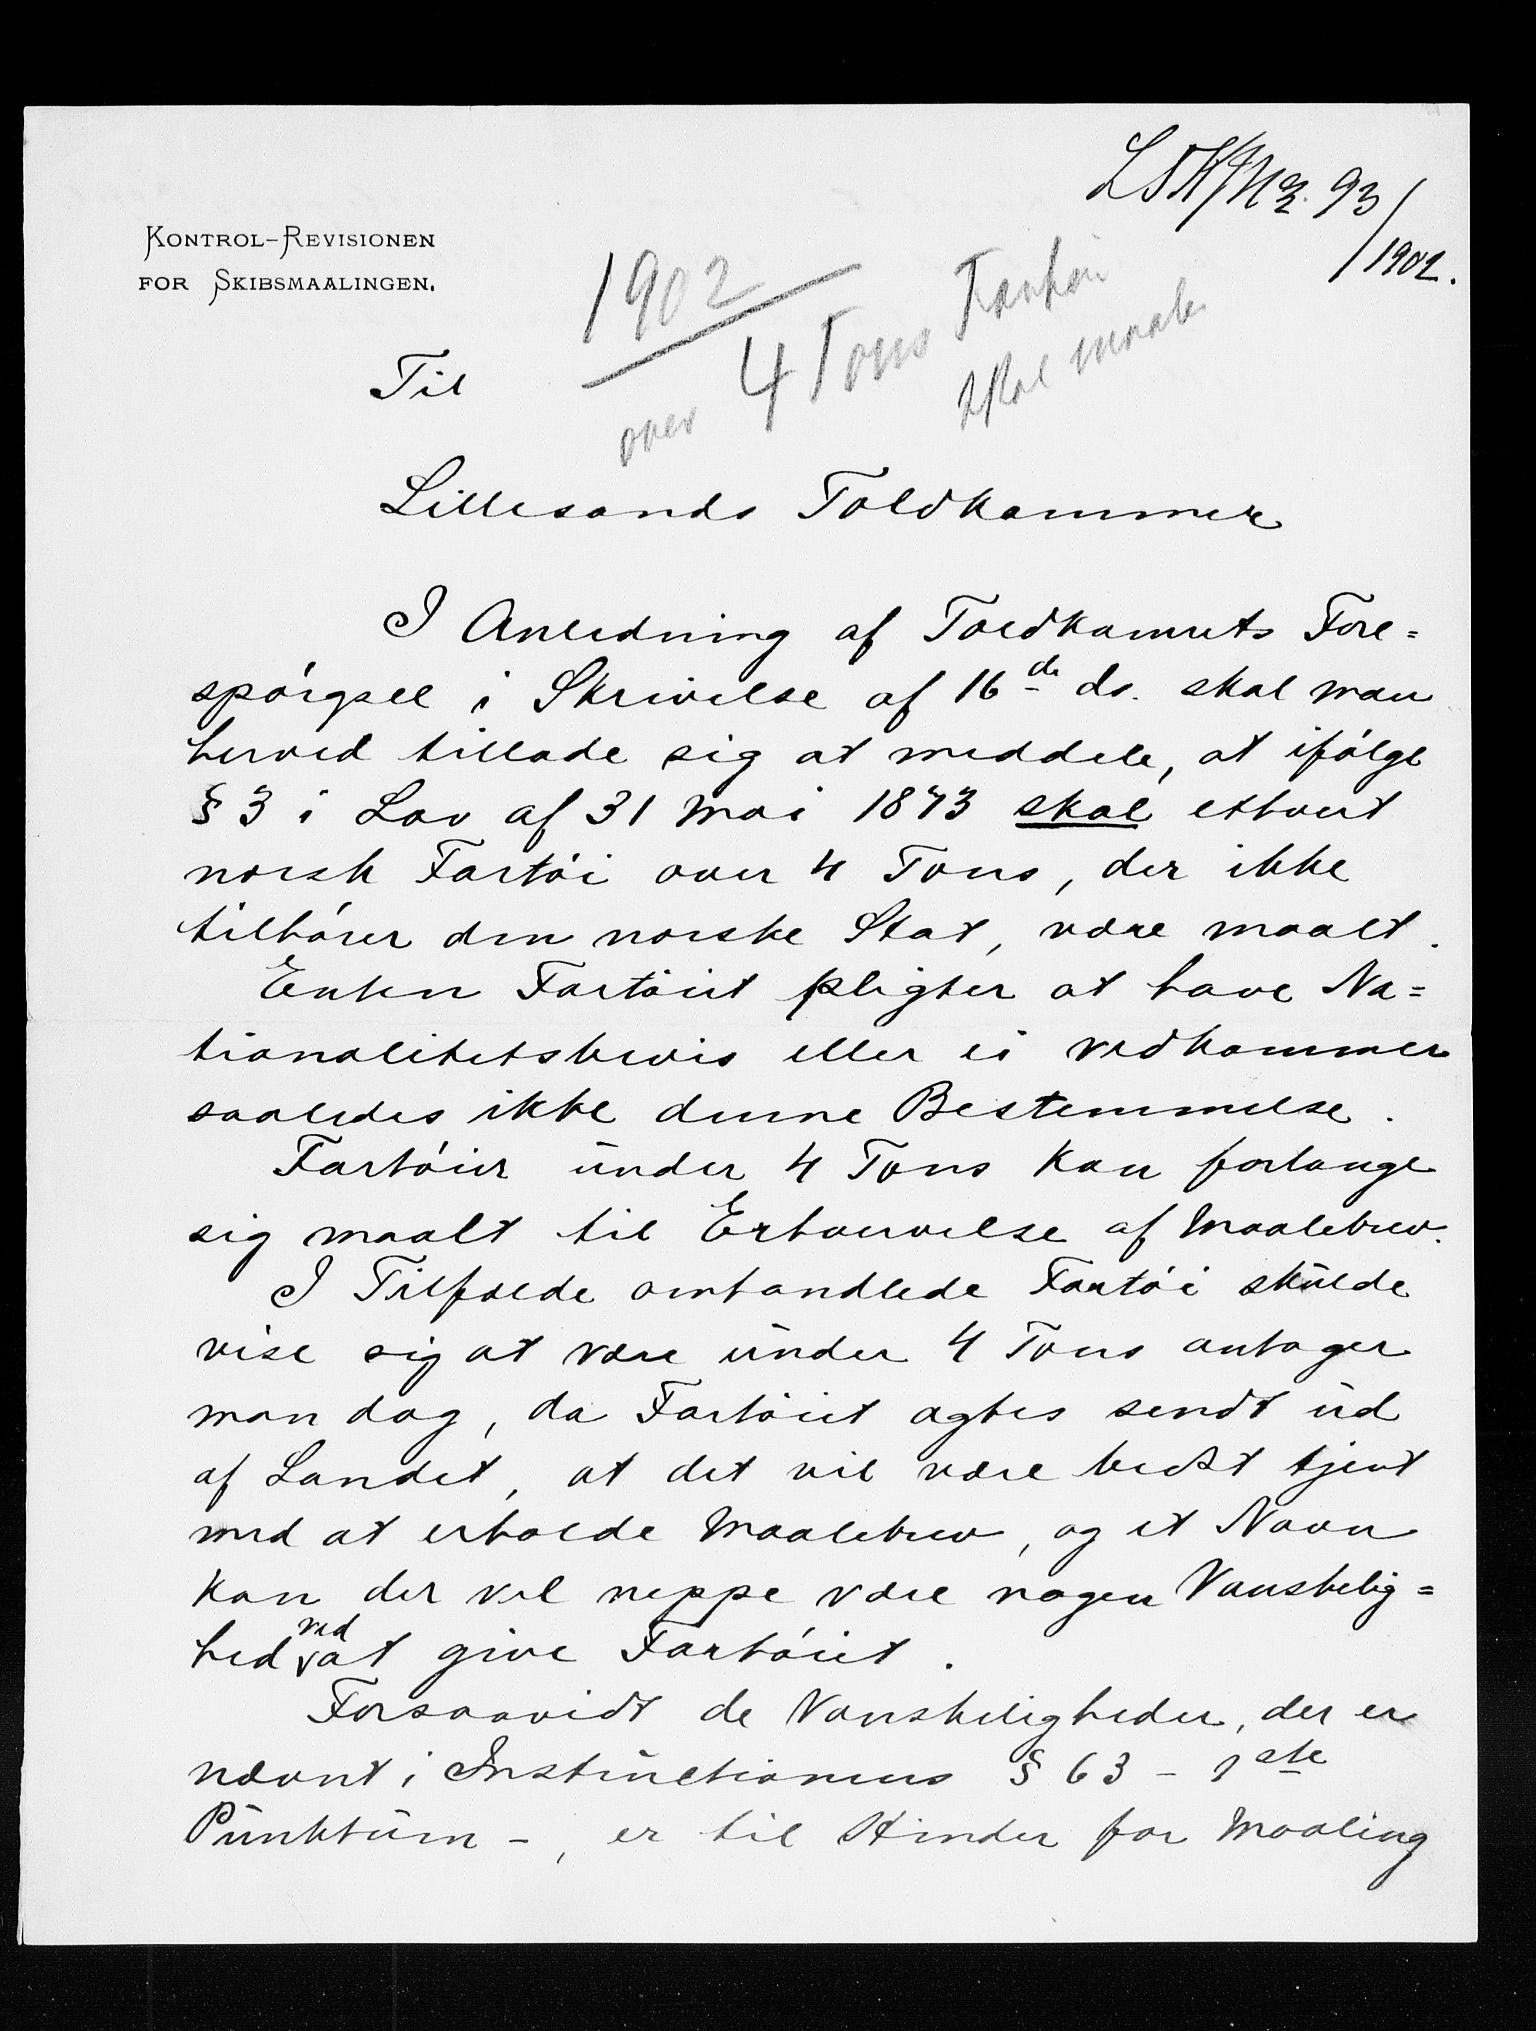 93/1902.
KONTROL-REVISIONEN
FOR SKIBSMAALINGEN.
1902
over 4 Tons Fartøi
skal maales
Til
Lillesands Toldkammer
I Anledning af Toldkamrets Fore=
spórgsel i Skrivelse af 16de ds. skal man
herved tillade sig at meddele, at ifólge
§ 3 i Lov af 31 Mai 1873 skal ethvert
norsk Fartói over 4 Tons, der ikke
tilhórer den norske Stat, være maalt.
Enten Fartóiet pligter at have Na=
tionalitetsbevis eller ei vedkommer
saaledes ikke denne Bestemmelse.
Fartóier under 4 Tons kan forlange
sig maalt til Erhvervelse af Maalebrev.
I Tilfælde omhandlede Fartói skulde
vise sig at være under 4 Tons antager
man dog, da Fartóiet agtes sendt ud
af Landet, at det vil være bedst tjent
med at erholde Maalebrev, og et Navn
kan der vel neppe være nogen Vanskelig=
hed ved at give Fartóiet.
Forsaavidt de Vanskeligheder, der er
nævnt i Instructionens § 63 - 1ste
Punktum -, er til Hinder for Maaling